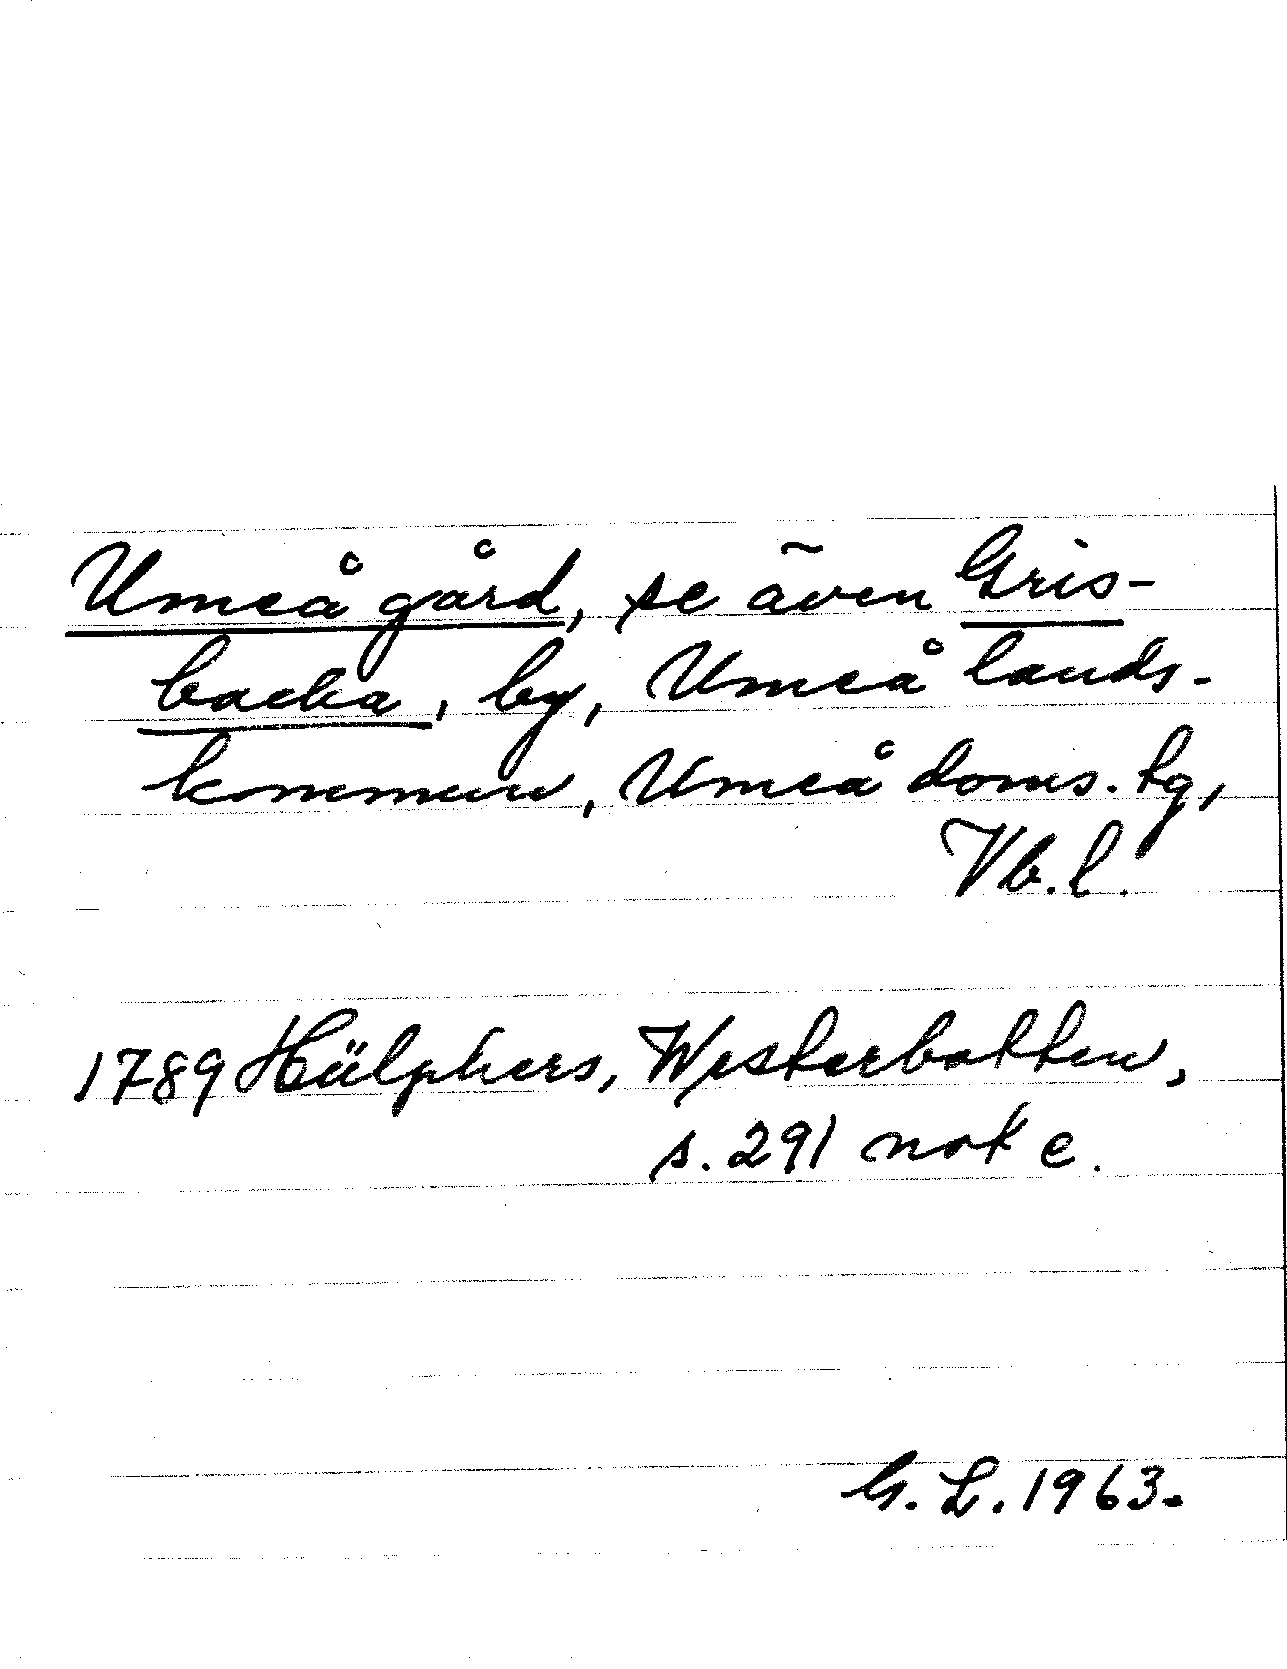 Umeå gård, se även Gris-
backa, by, Umeå lands-
kommun, Umeå doms. tg,
Vb. l.
1789 Hülphers, Westerbotten,
s. 291 not e.
G. L. 1963.